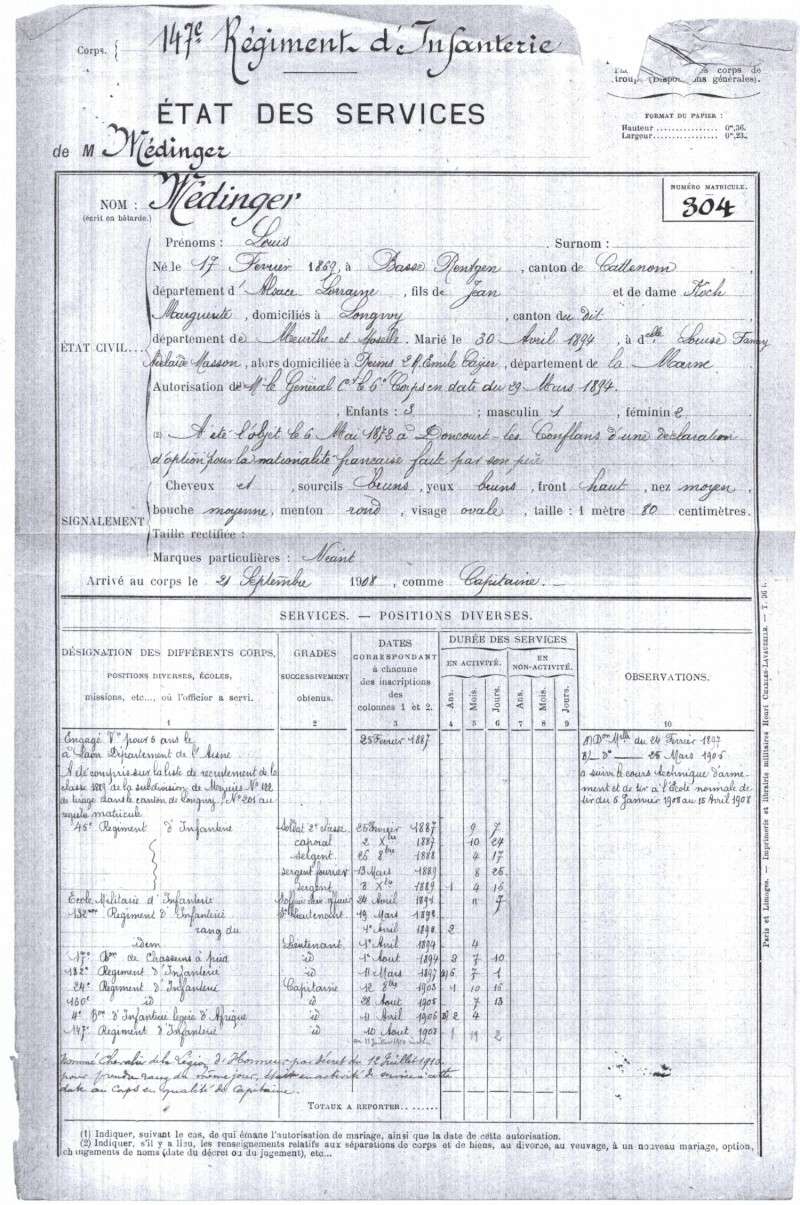 Corps. { 147e Régiment d'Infanterie
corps de
troupe (Dispositions générales).
FORMAT DU PAPIER :
Hauteur ................ 0m,36.
Largeur ................ 0m,23.
ÉTAT DES SERVICES
de M Médinger
NOM : Médinger
(écrit en bâtarde.)
NUMÉRO MATRICULE.
304
Prénoms : Louis Surnom :
Né le 17 Fevrier 1869, à Basse Rentgen, canton de Cattenom
département d'Alsace Lorraine, fils de Jean et de dame Koch
Marguerite, domiciliés à Longwy, canton du dit
département de Meurthe et Moselle. Marié le 30 Avril 1894, à delle Louise Fanny
ÉTAT CIVIL....
Adelaide Masson, alors domiciliée à Reims 2 R. Emile, département de la Marne
Autorisation de M. le Général Ct le 6e Corps en date du 29 Mars 1894.
, Enfants : 3 ; masculin 1 ; féminin 2
(2) A été l'objet le 6 Mai 1872 à Doncourt-les Conflans d'une déclaration
d'option pour la nationalité française fait par son père
SIGNALEMENT
Cheveux et, sourcils bruns, yeux bruns, front haut, nez moyen,
bouche moyenne, menton rond, visage ovale, taille : 1 mètre 80 centimètres.
Taille rectifiée :
Marques particulières : Néant
Arrivé au corps le 21 Septembre 1908, comme Capitaine.
SERVICES. — POSITIONS DIVERSES.
DÉSIGNATION DES DIFFÉRENTS CORPS,
POSITIONS DIVERSES, ÉCOLES,
missions, etc..., où l'officier a servi.
GRADES
SUCCESSIVEMENT
obtenus.
DATES
CORRESPONDANT
à chacune
des inscriptions
des
colonnes 1 et 2.
DURÉE DES SERVICES
EN ACTIVITÉ.
EN NON-ACTIVITÉ.
Ans. Mois. Jours. Ans. Mois. Jours.
OBSERVATIONS.
1 2 3 4 5 6 7 8 9 10
Engagé Vre pour 5 ans le 25 Fevrier 1887
à Laon Département de l'Aisne
A été compris sur la liste de recrutement de la
classe 1889 de la subdivision de
de tirage dans le canton de Longwy. No 201 au
registre matricule
A) Don Melle du 24 Fevrier 1897
B) — Do — 25 Mars 1905
a suivi le cours technique d'arme-
ment et de tir à l'École normale de
tir du 6 Janvier 1908 au 15 Avril 1908
45e Regiment d'Infanterie Soldat 2e classe 25 Fevrier 1887 9 7
caporal 2 Xbre 1887 10 24
sergent 26 8bre 1888 4 17
sergent fourrier 13 Mars 1889 8 25
sergent 8 Xbre 1889 1 4 16
École Militaire d'Infanterie 24 Avril 1891 7
132eme Regiment d'Infanterie S. Lieutenant 19 Mars 1892
rang du 1er Avril 1892 2
idem Lieutenant 1er Avril 1894 4
17e Bon de Chasseurs à pied id 1er Aout 1894 2 7 10
132e Regiment d'Infanterie id 11 Mars 1897 A) 6 7 1
24e Regiment d'Infanterie Capitaine 12 8bre 1903 1 10 16
160e id id 28 Aout 1905 7 13
4e Bon d'Infanterie legère d'Afrique id 11 Avril 1906 B) 2 4
147e Regiment d'Infanterie id 10 Aout 1908 1 11 2
Nommé Chevalier de la Légion d'Honneur par décret du 12 Juillet 1910
pour prendre rang du même jour, était en activité de service à cette
date au Corps en qualité de Capitaine.
TOTAUX A REPORTER........
(1) Indiquer, suivant le cas, de qui émane l'autorisation de mariage, ainsi que la date de cette autorisation.
(2) Indiquer, s'il y a lieu, les renseignements relatifs aux séparations de corps et de biens, au divorce, au veuvage, à un nouveau mariage, option,
changements de noms (date du décret ou du jugement), etc...
Paris et Limoges. — Imprimerie et librairie militaires Henri CHARLES-LAVAUZELLE.